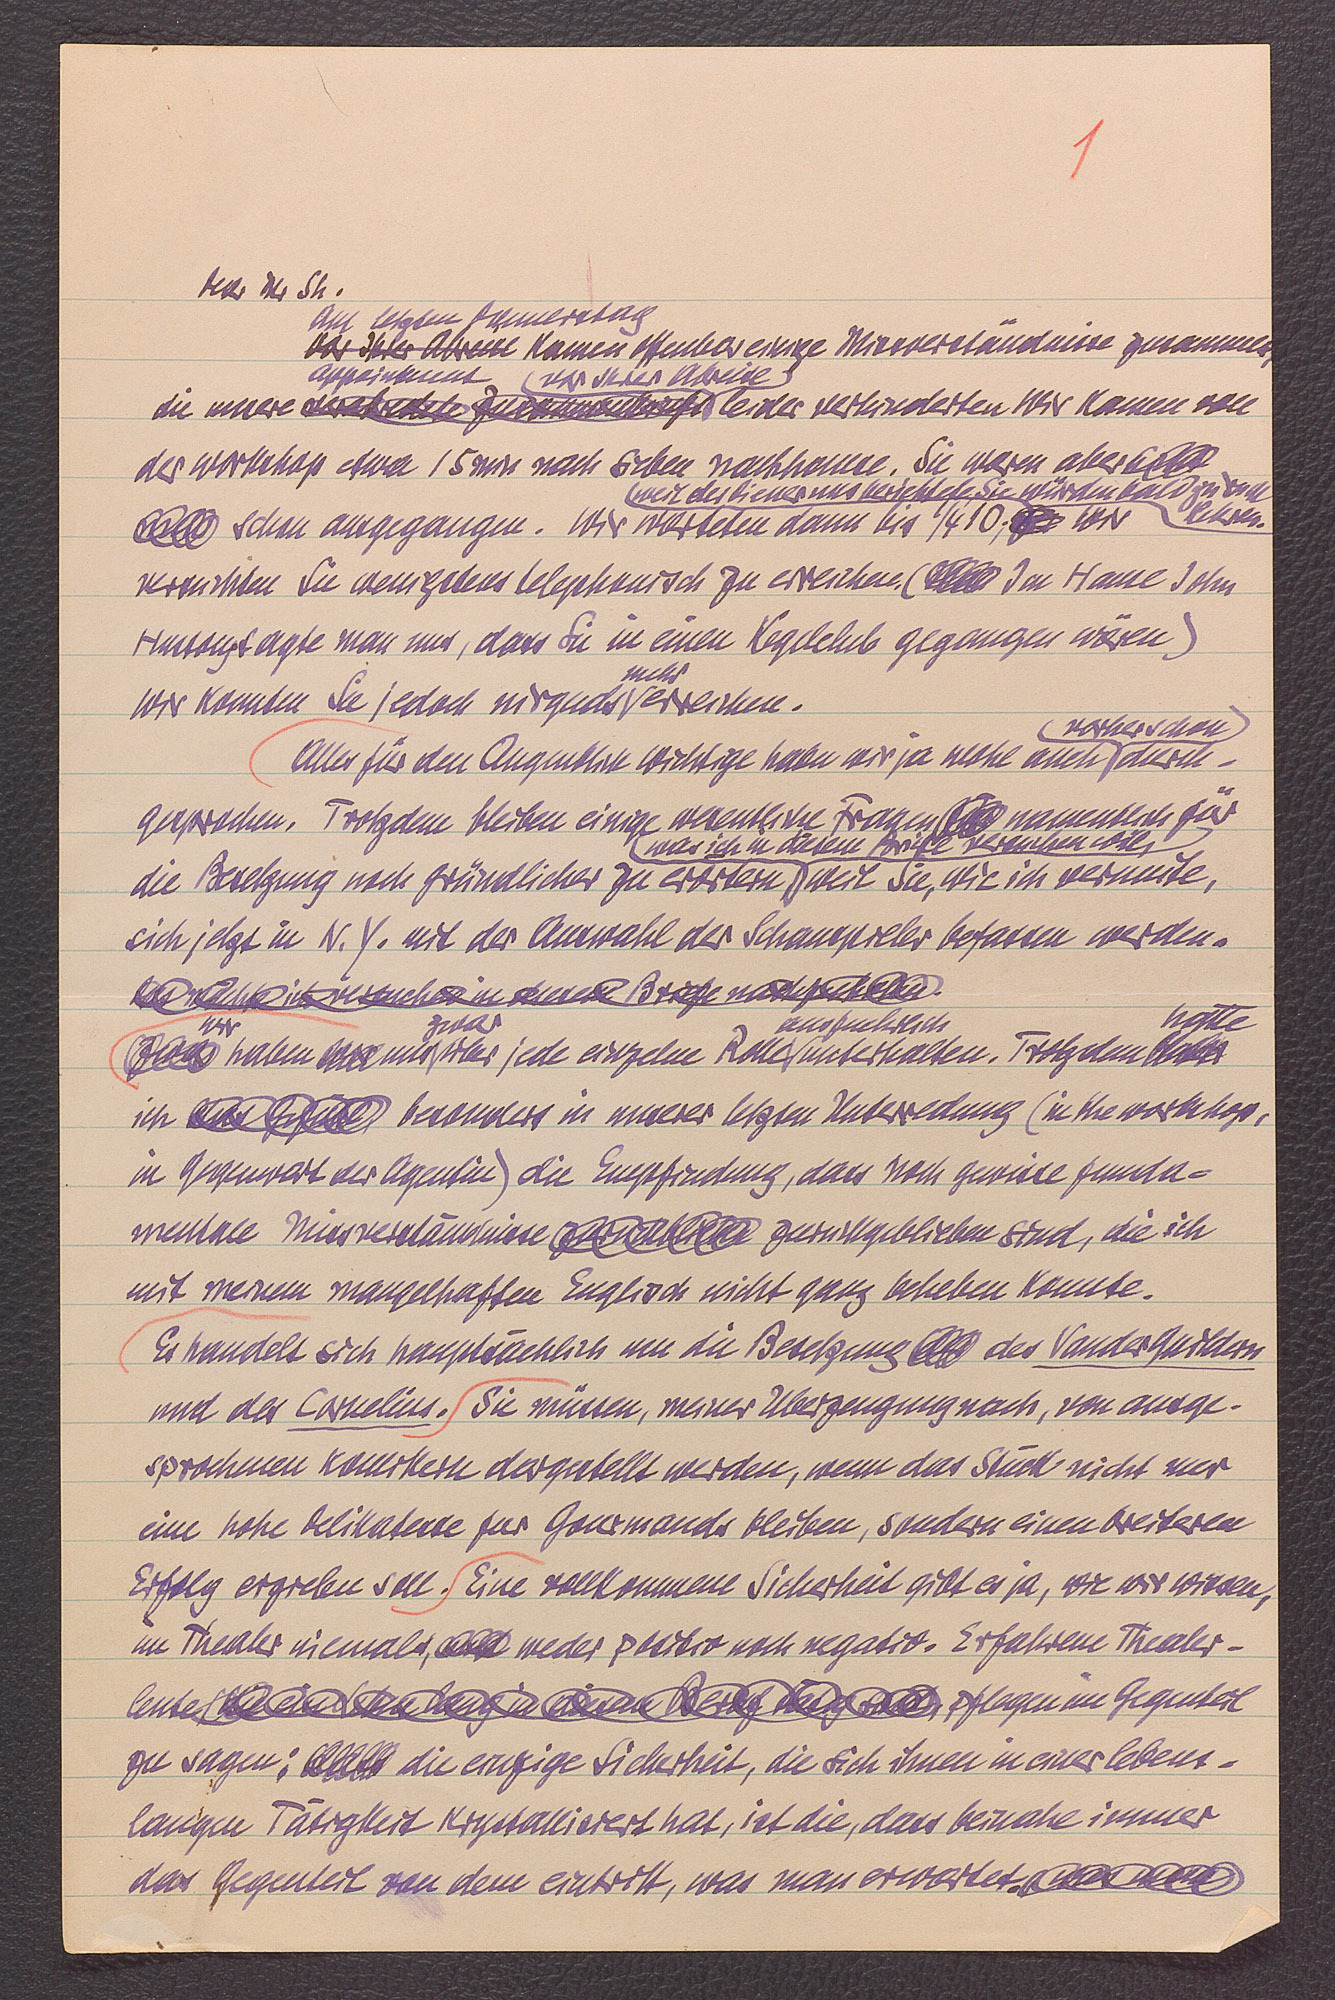 1
Dear Mr Sh.
Am letzten Donnerstag
Vor Ihrer Abreise kamen offenbar einige Missverständnisse zusammen,
appointment (vor Ihrer Abreise)
die unsere verabredete Zusammenkunft leider verhinderten. Wir kamen von
der workshop etwa 15 min nach sieben nachhause. Sie waren aber
(weil der Diener uns berichtete Sie würden bald zurück
schon ausgegangen. Wir warteten dann bis 1/4 10, wir kehren.
versuchten Sie wenigstens telephonisch zu erreichen. (Im Hause John
Hustons sagte man uns, dass Sie in einen Kegelclub gegangen wären)
mehr
Wir konnten Sie jedoch nirgends erreichen.
(vorher schon)
Alles für den Augenblick wichtige haben wir ja wohl auch durch-
gesprochen. Trotzdem bleiben einige wesentliche Fragen namentlich für
(was ich in diesem Briefe versuchen will,)
die Besetzung noch gründlicher zu erörtern weil Sie, wie ich vermute,
sich jetzt in N.Y. mit der Auswahl der Schauspieler befassen werden.
in diesem Briefe
wir zwar ausfuehrlich hatte
haben uns über jede einzelne Rolle unterhalten. Trotzdem
ich besonders in unserer letzten Unterredung (in the workshop,
in Gegenwart der Agentin) die Empfindung, dass noch gewisse funda-
mentale Missverständnisse zurückgeblieben sind, die ich
mit meinem mangelhaften Englisch nicht ganz beheben konnte.
Es handelt sich hauptsächlich um die Besetzung des VanderGuildern
und des Cornelius. Sie müssen, meiner Überzeugung nach, von ausge-
sprochenen Komikern dargestellt werden, wenn das Stück nicht nur
eine hohe Delikatesse für Gourmands bleiben, sondern einen breiteren
Erfolg ergeben soll. Eine vollkommene Sicherheit gibt es ja, wie wir wissen,
im Theater niemals, weder positiv noch negativ. Erfahrene Theater-
leute, pflegen im Gegenteil
zu sagen: die einzige Sicherheit, die sich ihnen in einer lebens-
langen Tätigkeit krystallisiert hat, ist die, dass beinahe immer
das Gegenteil von dem eintritt, was man erwartet.